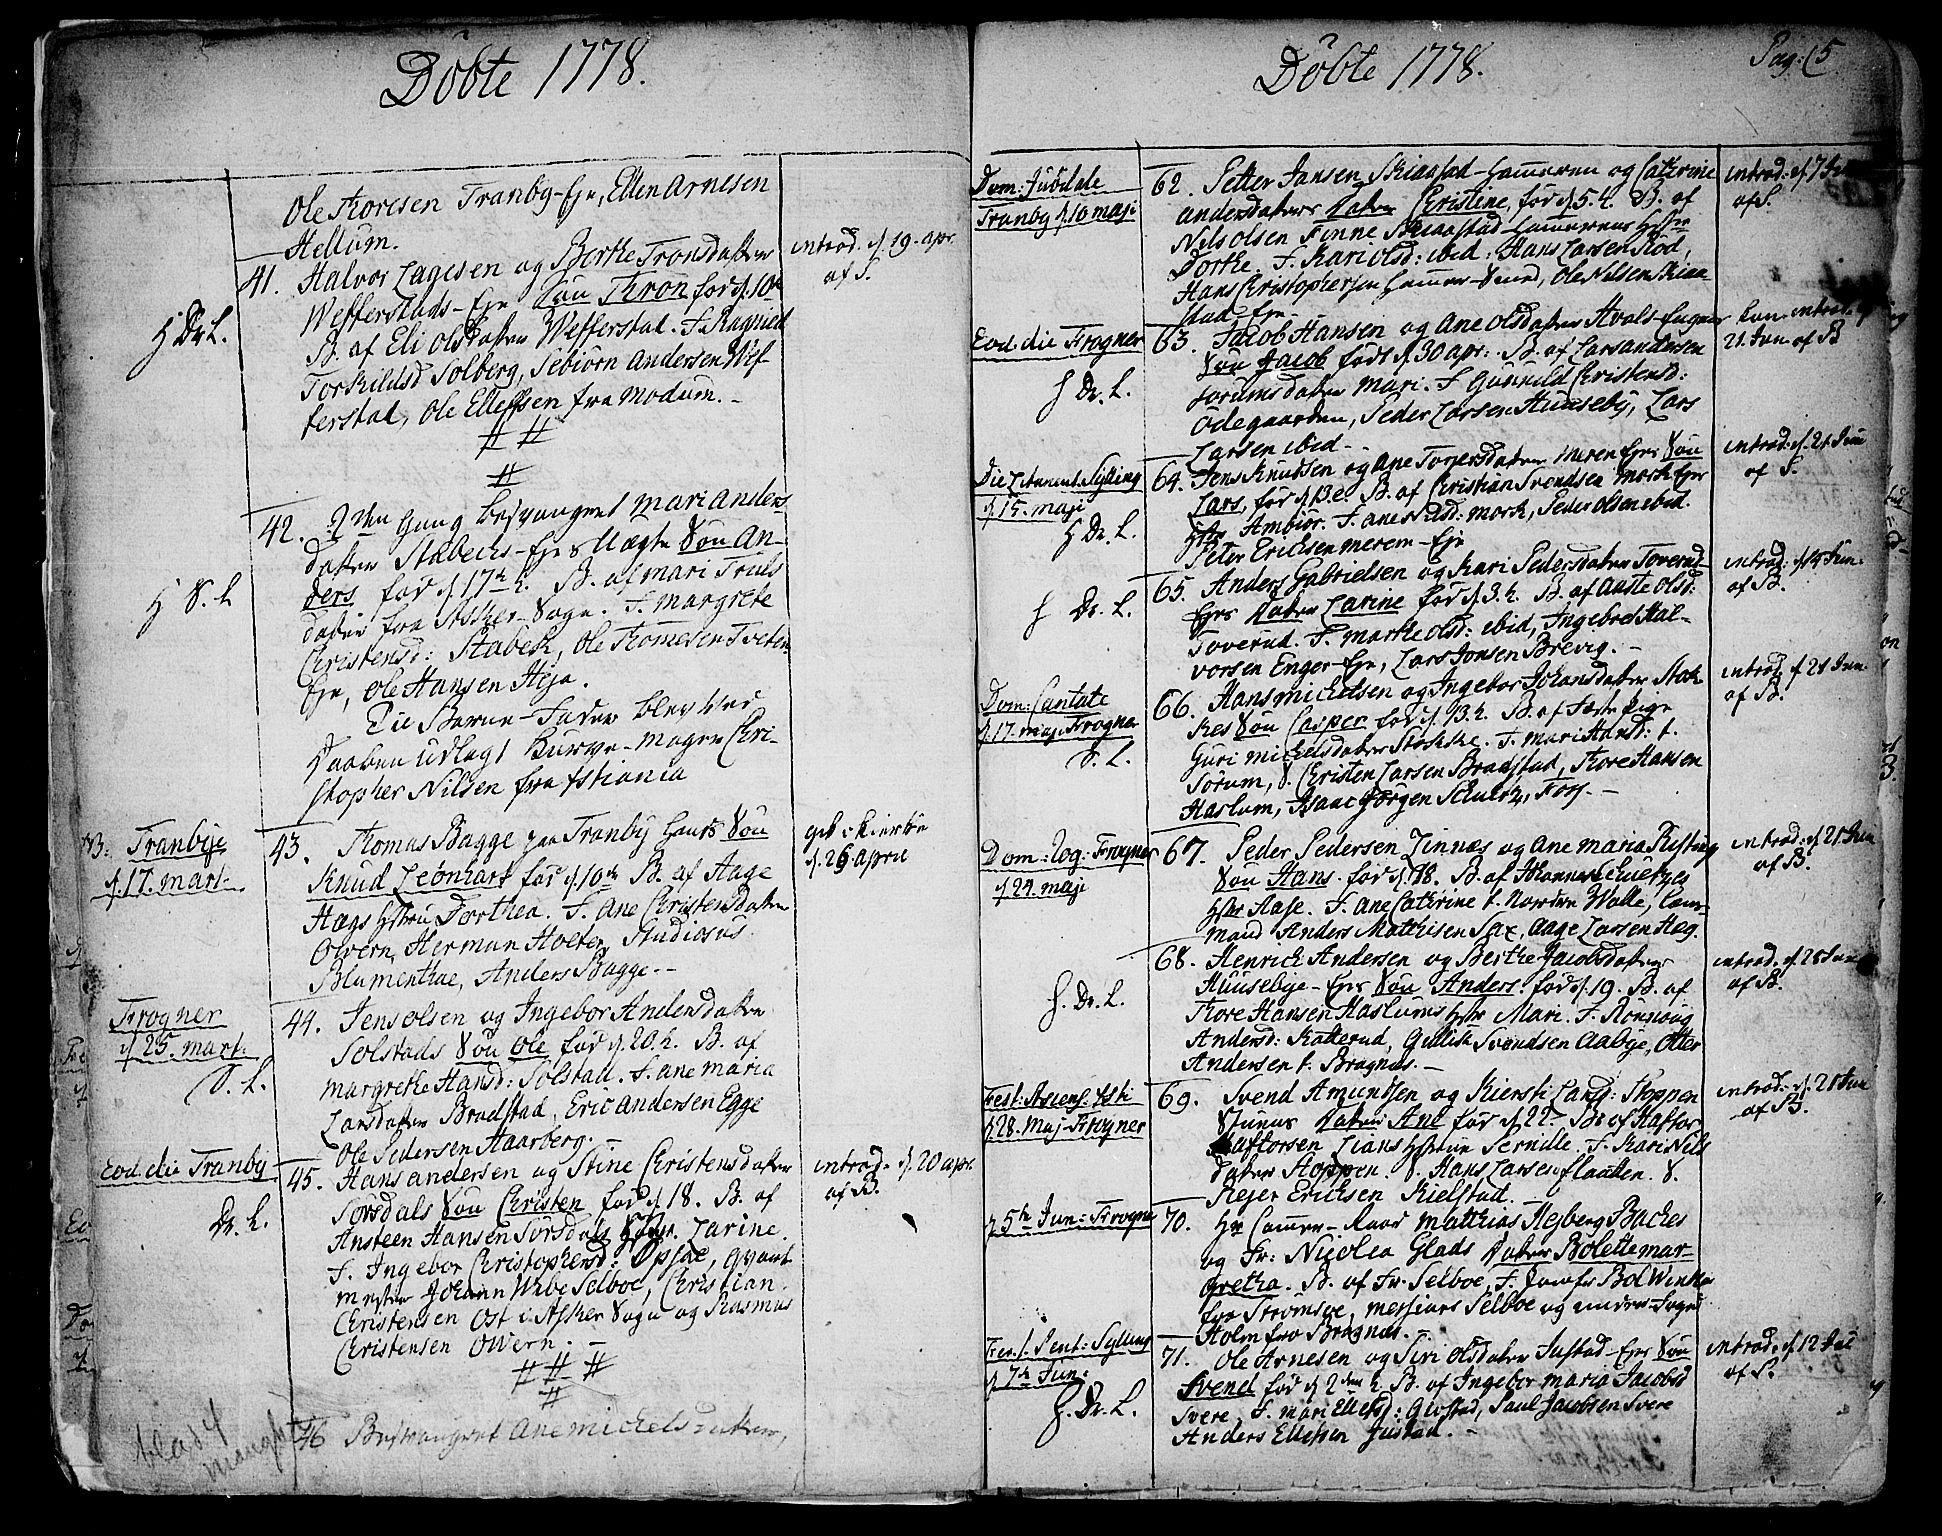 Döbte 1778.
Ole Thoresen Tranby-Eje, Ellen Arnesen
Hellum.
41. Halvor Lagesen og Berthe Tronsdatter
Wefferstads-Eje Sön Thron fød d. 10de
B. af Eli Olsdatter Wefferstad. F. Ragnild
Torkildsd Solberg, Sebiörn Andersen Wef
ferstad, Ole Ellefssen fra Modum.-
introd. d. 19. apr.
af S.
H Dr. L.
42. 2den Gang besvangret Mari Anders
datter Stabechs-Ejes Uægte Sön An-
ders fød d. 17de h. B. af Mari Truls
datter fra Asker-Sogn. F. Margrethe
Christensd: Stabek, Ole Thomesen Tveten
Eje, Ole Hansen Heja.
Til Barne-Fader blev ved
Daaben udlagt Buntmager Chri-
stopher Nilsen fra Xstiania
H S. L
43. Thomas Bagge paa Tranby hans Sön
Knud Leonhart fød d. 10de B. af Aage
Hægs Hstru Dorthea. F. Ane Christensdatter
Owern, Herman Hoeter, Studiosus
Blumenthal, Anders Bagge.--
NB: Tranbye
d. 17. mart.
d. 26 april
44. Jens Olsen og Ingebor Andersdatter
Solstads Sön Ole fød d. 20. h. B. af
Margrethe Hansd: Solstad. F. Ane Maria
Larsdatter Bradstad, Eric Andersen Egge
Ole Pedersen Aarberg.-
Frogner
d 25. mart.
S. L.
45. Hans Andersen og Stine Christensdatter
Torsdals Sön Christen fød d 18. B. af
Ansteen Hansen Torsdals Hstr. Larine.
F. Ingebor Christophersd: Opsal, Qvart
mester Johann Wibe Selboe, Christian
Christensen Ost i Asker Sogn og Rasmus
Christensen Owern.-
Eod. die Tranby
Dr. L.
introd. d. 20 apr.
af B.
46 Besvangret Ane Michelsdatter,
blad 4
mangler
Döbte 1778.
Pag: (5
Dom: Jubilate
Tranby d. 10 maji
62. Petter Jansen Skiaastad-Hammeren og Cathrine
Andersdatters Datter Christine, fød d. 5. h. B. af
Nils Olsen Finne Skiaastad Hammerens Hstr
Dorthe. F. Kari Olsd: ibid, Hans Larsen Rod,
Hans Christophersen Hammer-Svend, Ole Nilsen Skiaa
stad-Eje.-
introd: d. 7 Jun
af S.
Eod. die Frogner
H Dr. L.
63. Jacob Hansen og Ane Olsdatter Hvals-Engens
Sön Jacob født d. 30 apr: B. af Lars Andersen
Sorumsdatter Mari. F. Gunnild Christensd:
Ödegaarden, Peder Larsen Huuseby, Lars
Larsen ibid-
introd.
21. Jun. af B
Sylling
d. 15. maji
H Dr. L.
64. Jens Knudsen og Ane Torersdatter Meren Ejes Sön
Lars, fød d. 13. B. af Christian Svendsen Mork Ejes
Hstr Ambiör. F. Ane Nilsd: Mork, Peder Olsen ibid.
Peter Ericksen Meren-Eje
introd: d. 21 Jun
af S.
H. Dr. L.
65. Anders Gabrielsen og Kari Pedersdatter Toverud-
Ejes Datter Larine fød d. 3. h. B. af Aaste Olsd:
Toverud. F. Marthe Olsd: ibid, Ingebret Hal-
vorsen Enger-Eje, Lars Jonsen Brevig.-
introd: d. 14 Jun.
af B.
Dom: Cantate
d. 17. maji Frogner
S. L.
66. Hans Michelsen og Ingebor Johansdatter Stok-
kes Sön Casper fød d. 13. h. B. af Fæste Pige
Guri Michelsdatter Stokke. F. Mari Hansd: t.
Sorum, S. Christen Larsen Bradstad, Thore Hansen
Haslum, Isaac Jörgen Schultz, Foss.-
introd d 21 Jun.
af B.
Dom: Rog: Frogner
d 24. maji
67. Peder Pedersen Linnæs og Ane Maria Risting
Sön Hans fød d. 18. B. af Johannes Schultzes
Hstr Aase. F. Ane Cathrine t. Nordre Walle, Lens-
mand Anders Mathisen Sax, Aage Larsen Hæg.
introd: d. 21 Jun
af B.
H. Dr. L.
68. Henrich Andersen og Berthe Jacobsdatter
Huusebye-Ejes Sön Anders fød d. 19. B. af
Thore Hansen Haslums Hstr Mari. F. Rönnoug
Andersd: Katterud, Gullich Svendsen Aabye, Otter
Andersen t. Bragnæs.-
introd: d. 28 Jun
af B.
Fest: Ascens: Xsti
d. 28. Maj Frogner
69. Svend Amundsen og Kiersti Larsd: Stoppen
Datter Ane fød d. 22. B. af Haftor
Haftorsen Lians Hstrue Pernille. F. Kari Nils
datter Stoppen. S. Hans Larsen Flaaten. S.
Rejer Ericksen Kielstad.
introd: d. 21 Jun
af B.
d. 5te Jun: Frogner
70. Hr Cammer-Raad Matthias Hejberg Baches
og Fr: Nicolea Glads Datter Bolette Mar-
gretha. B. af Fr. Selboe, F. Jomfr Bol Winther
fra Stromsoe, Messieurs Selboe og under-Foged
Holm fra Bragnæs.-
Sylling
d. 7de Jun:
H. Dr. L.
71. Ole Arnesen og Siri Olsdatter Justad-Ejes Sön
Svend fød d 2den h. B. af Ingebor Maria Jacobsd
Svere, F. Mari Ellefsd: Giustad, Paul Jacobsen Svere
Anders Ellefsen Justad.-
introd: d 12 Jul
af S.